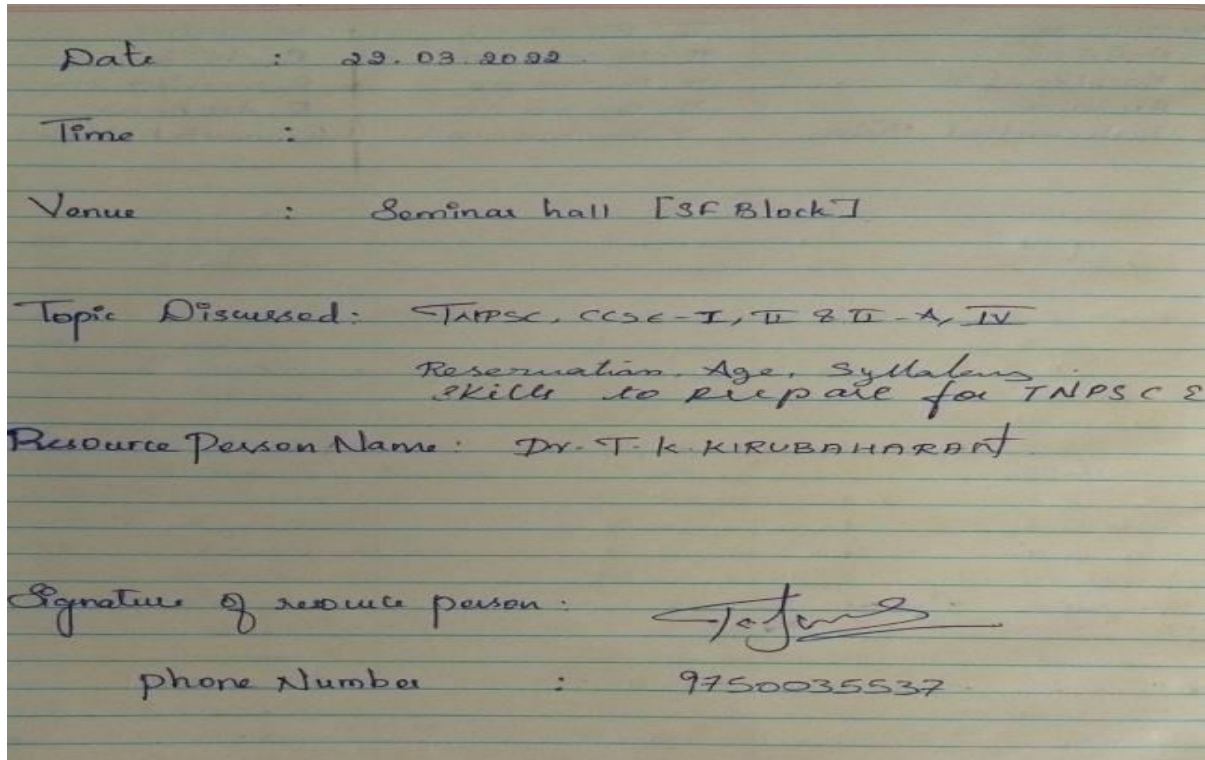 Date : 22.03.2022.
Time :
Venue : Seminar hall [SF Block]
Topic Discussed: TNPSC, CCSE-I, II & II-A, IV
Reservation, Age, Syllabus
skills to prepare for TNPSC E
Resource Person Name: Dr. T. K. KIRUBAHARAN
Signature of resource person:
phone Number : 9750035537.